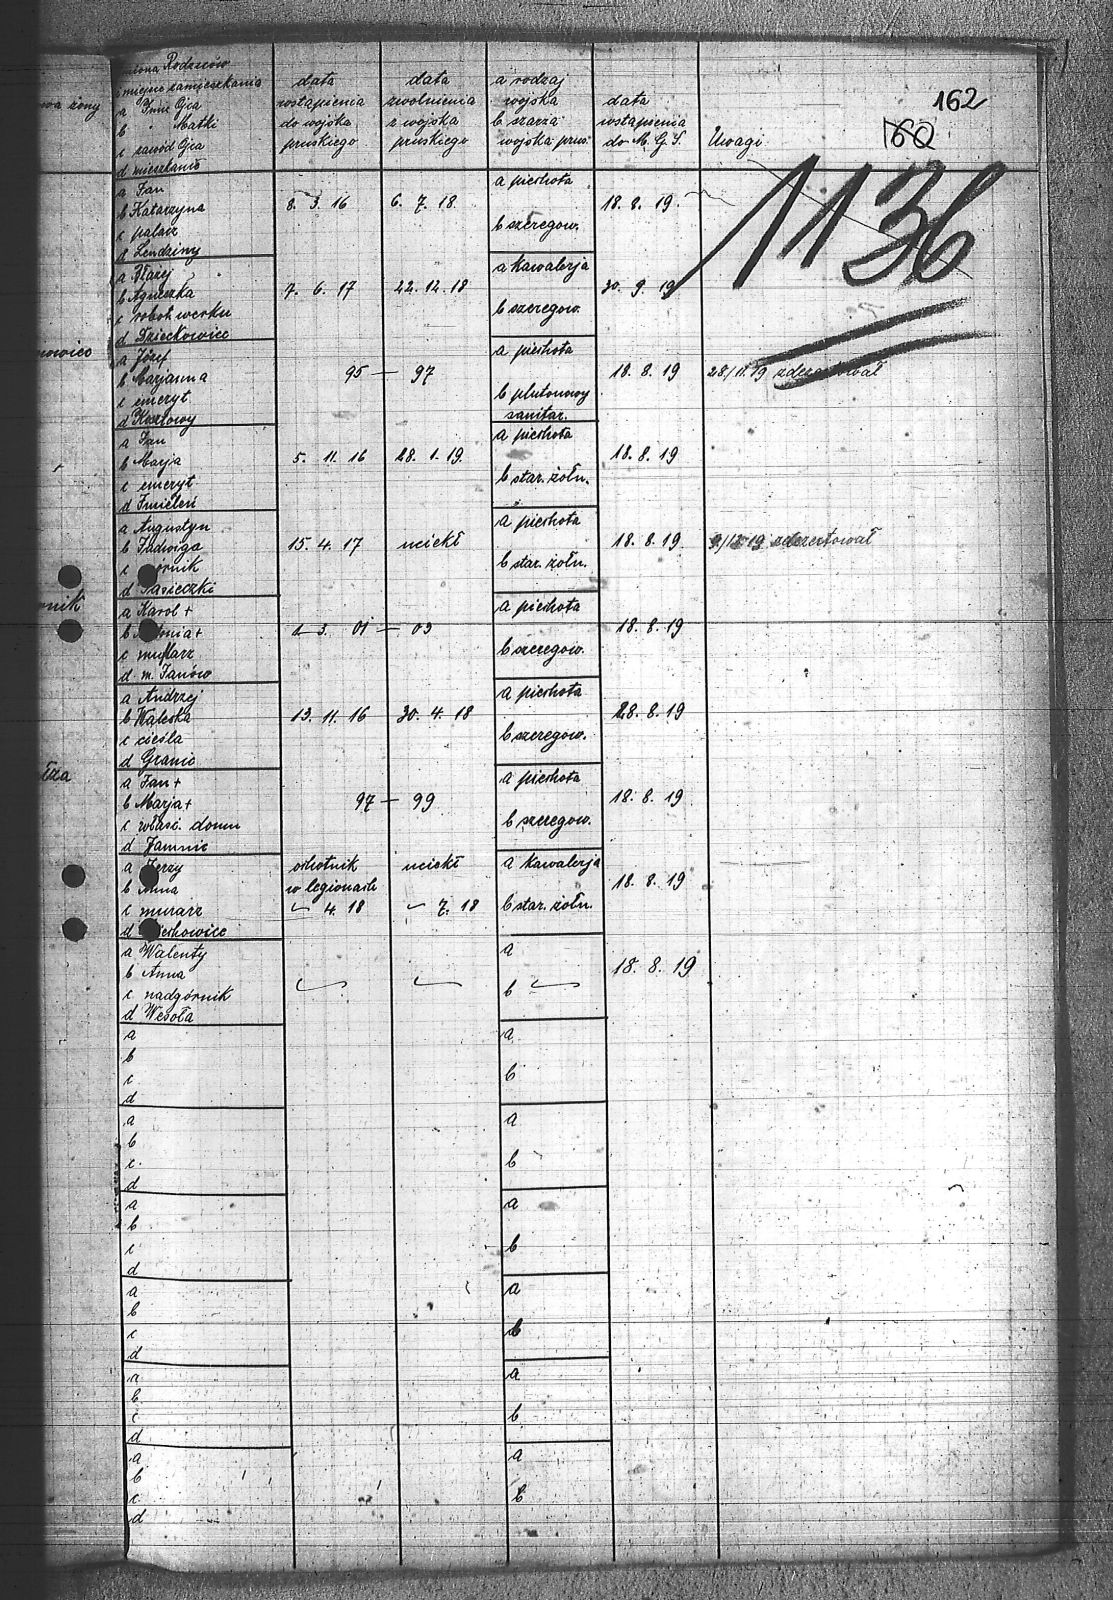 162
160
1136
Imiona Rodziców
i miejsce zamieszkania
a Imię Ojca
b " Matki
c zawód Ojca
d mieszkanie
data
wstąpienia
do wojska
pruskiego
data
zwolnienia
z wojska
pruskiego
a rodzaj
wojska
b szarża
wojska prus.
data
wstąpienia
do M. G. S.
Uwagi
a Jan
b Katarzyna
c palacz
d Lendziny
8. 3. 16
6. 7. 18
a piechota
b szeregow.
18. 8. 19
a Błażej
b Agnieszka
c robot. werku
d Dzieckowice
7. 6. 17
22. 12. 18
a kawalerja
b szeregow.
30. 9. 19
a Józef
b Marjanna
c emeryt
d Kosztowy
95 — 97
a piechota
b plutonowy
sanitar.
18. 8. 19
28/11. 19 zdezertował
a Jan
b Marja
c emeryt
d Imieleń
5. 11. 16
28. 1. 19
a piechota
b star. żołn.
18. 8. 19
a Augustyn
b Jadwiga
c górnik
d Pasieczki
15. 4. 17
uciekł
a piechota
b star. żołn.
18. 8. 19
zdezertował
a Karol +
b Antonia +
c murarz
d m. Janów
3. 01 — 03
a piechota
b szeregow.
18. 8. 19
a Andrzej
b Waleska
c cieśla
d Granic
13. 11. 16
30. 4. 18
a piechota
b szeregow.
28. 8. 19
a Jan +
b Marja +
c właśc. domu
d Jamnic
97 — 99
a piechota
b szeregow.
18. 8. 19
a Jerzy
b Anna
c murarz
ochotnik
w legionach
4. 18
uciekł
7. 18
a kawalerja
b star. żołn.
18. 8. 19
a Walenty
b Anna
c nadgórnik
d Wesoła
a
b
18. 8. 19
a
b
c
d
a
b
a
b
c
d
a
b
a
b
c
d
a
b
a
b
c
d
a
b
a
b
c
d
a
b
a
b
c
d
a
b